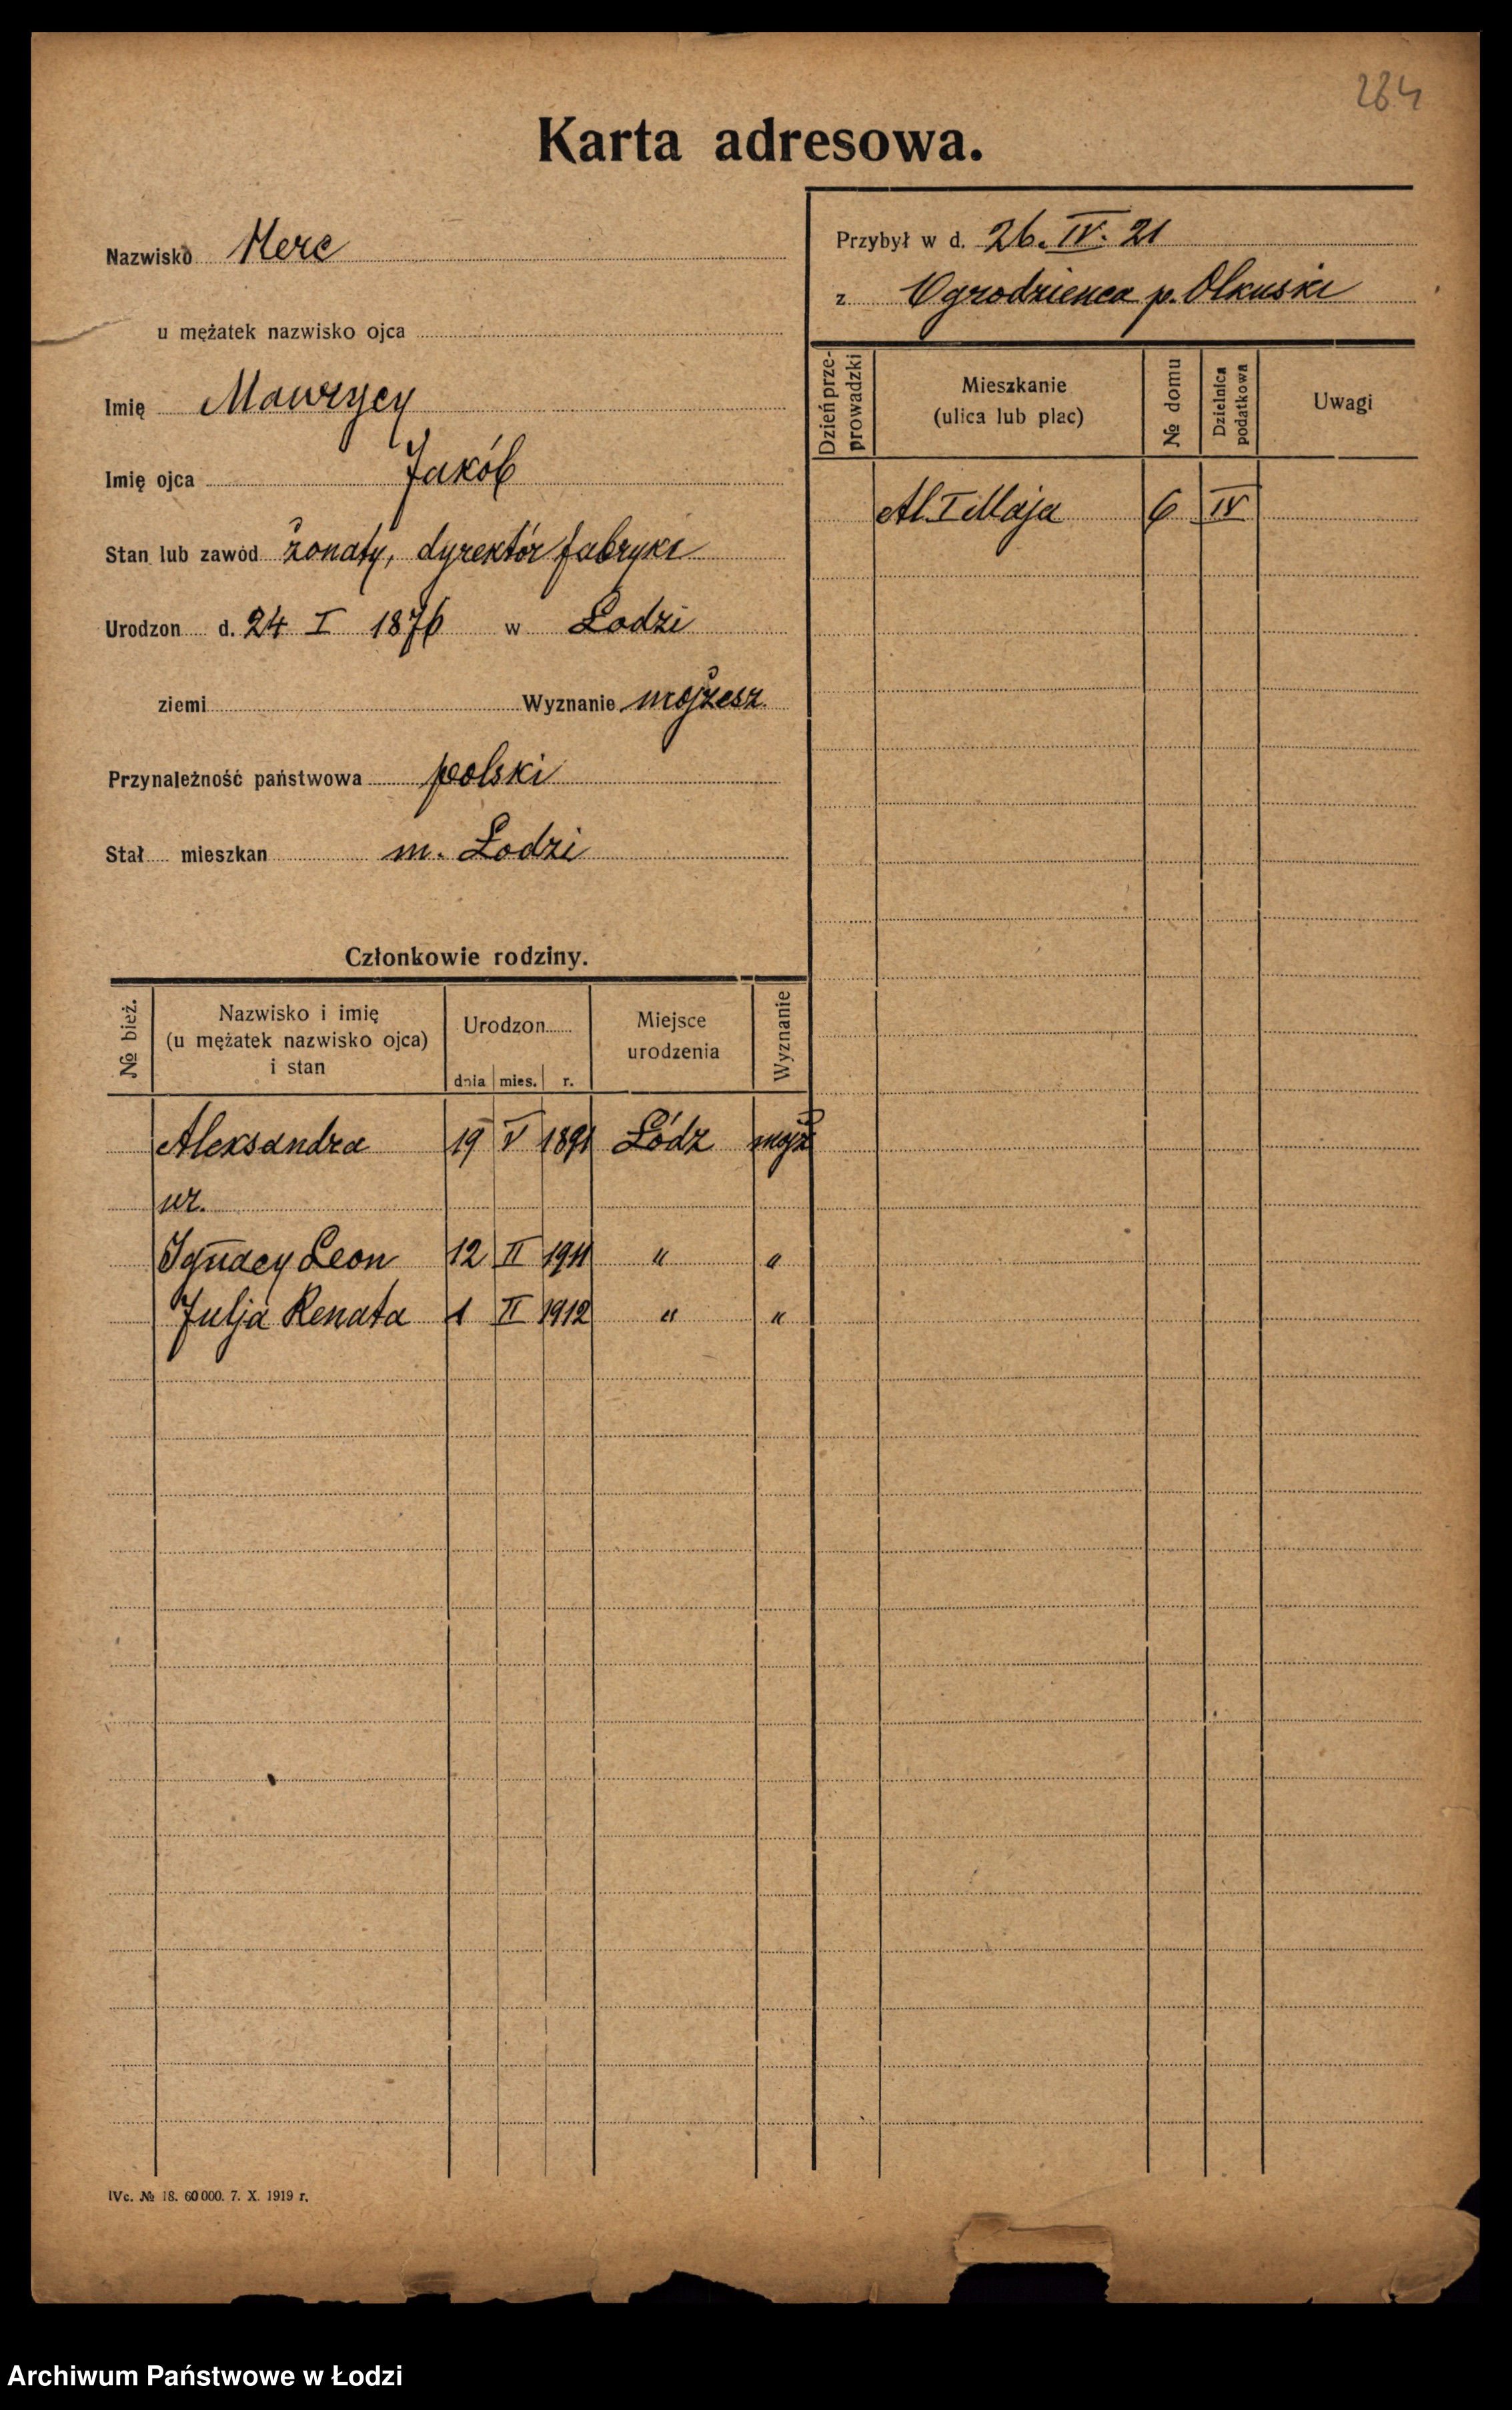 284
Karta adresowa.
Nazwisko Herc
u mężatek nazwisko ojca
Imię Maurycy
Imię ojca Jakób
Stan lub zawód żonaty, dyrektór fabryki
Urodzon d. 24 I 1876 w Łodzi
ziemi Wyznanie mojżesz.
Przynależność państwowa polski
Stał mieszkan m. Łodzi
Przybył w d. 26. IV. 21
z Ogrodzienca p. Olkuski
Dzień prze-
prowadzki
Mieszkanie
(ulica lub plac)
№ domu
Dzielnica
podatkowa
Uwagi
Al. I Maja 6 IV
Członkowie rodziny.
№ bież.
Nazwisko i imię
(u mężatek nazwisko ojca)
i stan
Urodzon
dnia mies. r.
Miejsce
urodzenia
Wyznanie
Aleksandra 19 V 1891 Łódz mojż
ur.
Ignacy Leon 12 II 1911 " "
Julja Renata 1 II 1912 " "
IVc. № 18. 60 000. 7. X. 1919 r.
Archiwum Państwowe w Łodzi